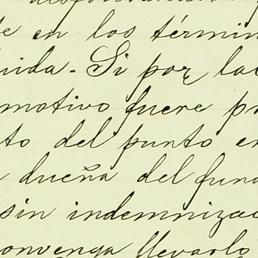 e en los términ
nida. Si por la
motivo fuere p
to del punto e
dueña del fun
sin indemniza
convenga llevarlo